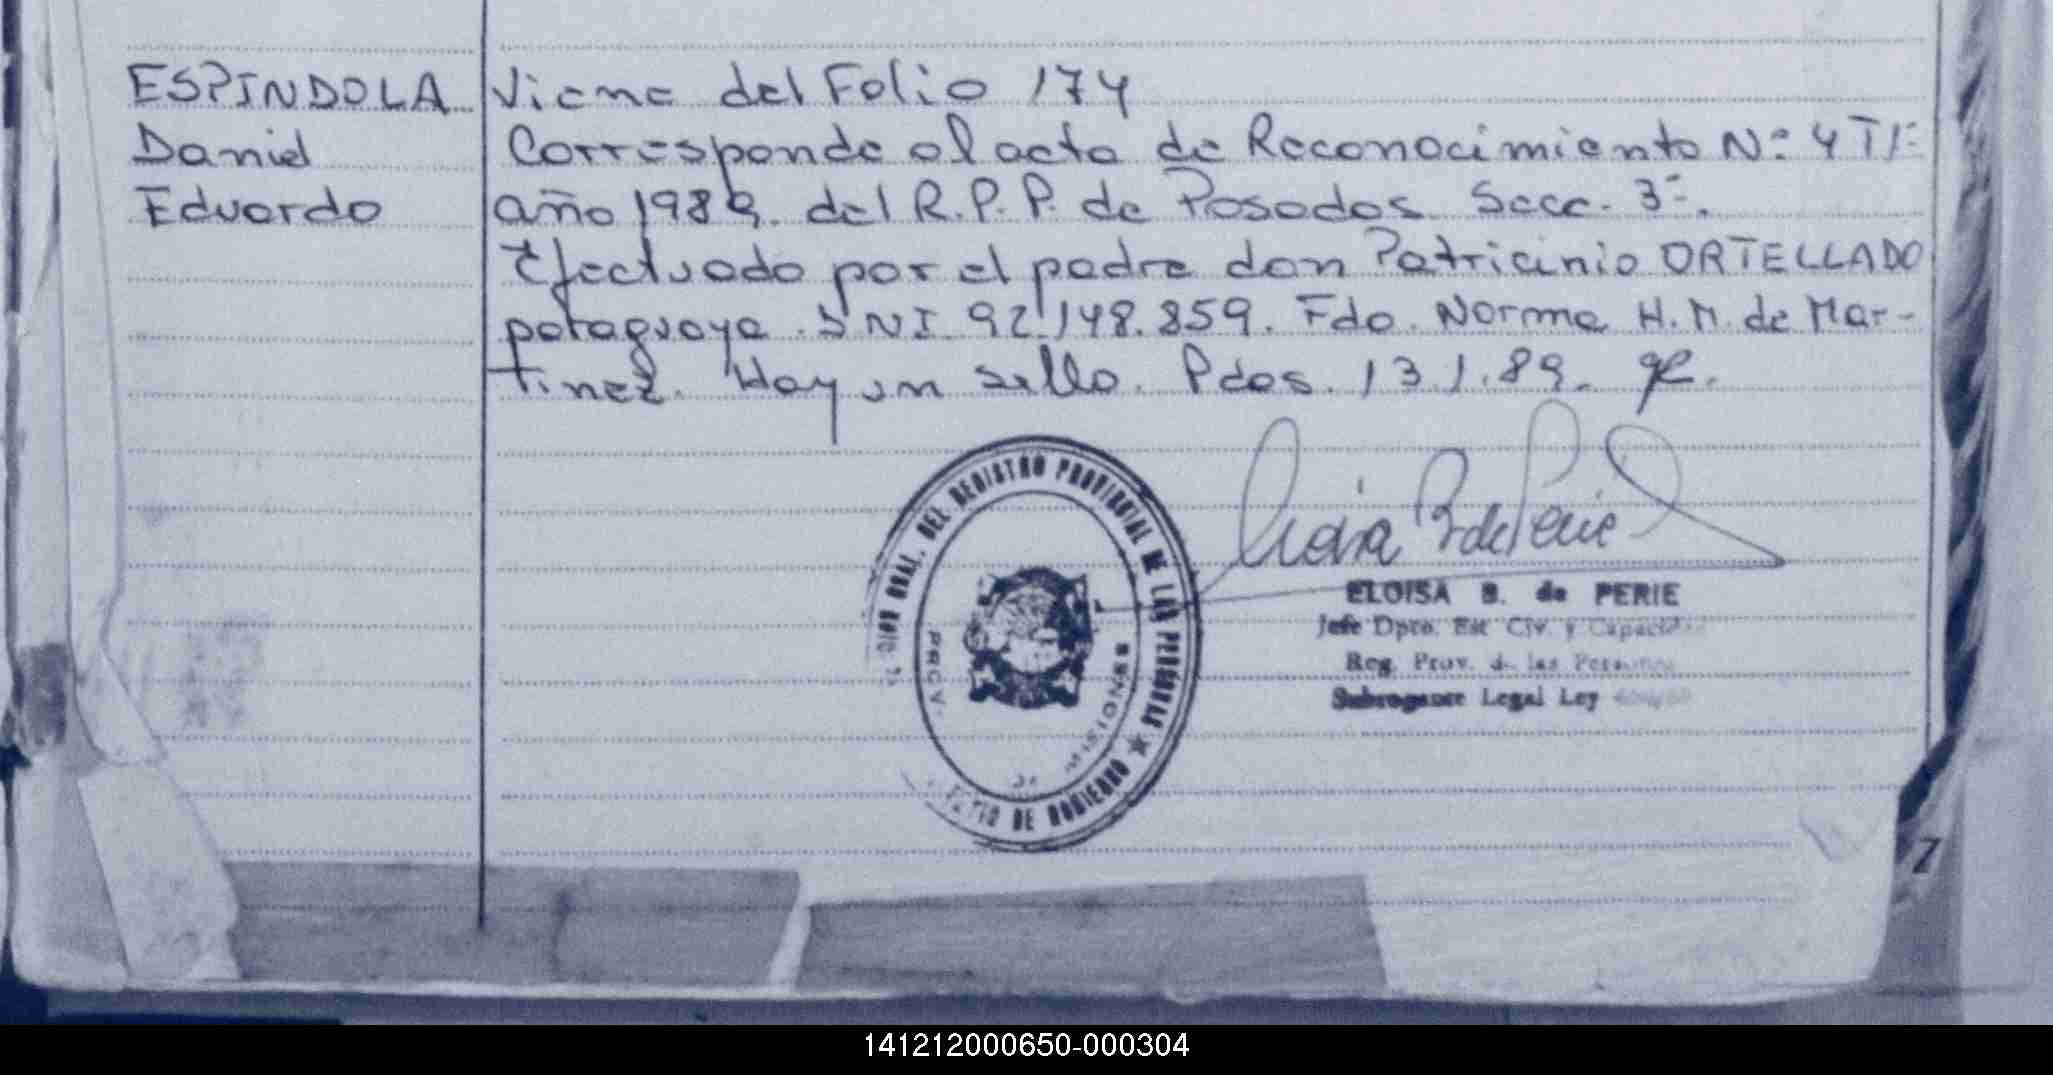 ESPINDOLA
Daniel
Eduardo
Viene del Folio 174
Corresponde al acta de Reconocimiento Nº 4 T1º
año 1989. del R.P.P. de Posadas Secc. 3º.
Efectuado por el padre don Patricinio ORTELLADO
paraguayo. DNI 92.148.859. Fdo. Norma H.M. de Mar-
tinez. Hay un sello. Pdas. 13.1.89.
DEL REGISTRO PROVINCIAL DE LAS PERSONAS ★
DE GOBIERNO
ELOISA B. de PERIE
Jefe Dpto. Est Civ. y
Reg. Prov. de las
Subrogante Legal Ley
7
141212000650-000304